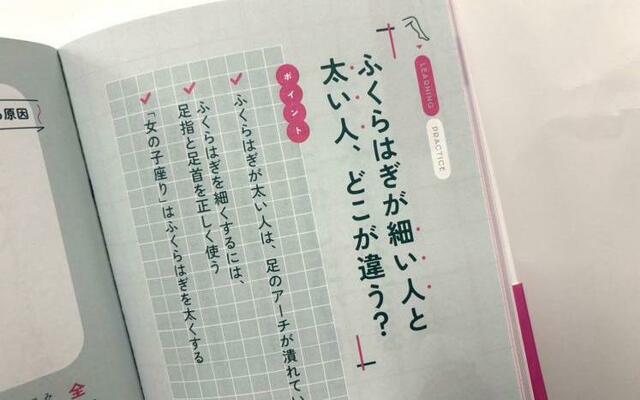 LEARNING
PRACTICE
ふくらはぎが細い人と
太い人、どこが違う？
ポイント
ふくらはぎが太い人は、足のアーチが潰れてい
ふくらはぎを細くするには、
足指と足首を正しく使う
「女の子座り」はふくらはぎを太くする
原因
全
み